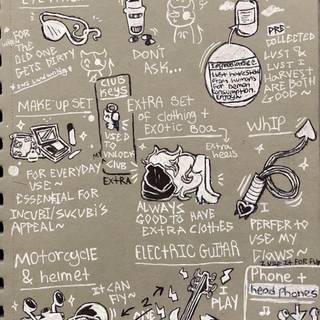 FOR WHEN
THE OLD ONE
GETS DIRTY
DONT
ASK...
PRE
COLLECTED
LUST &
LUST I
HARVEST
ARE BOTH
GOOD
LUST HARVESTED
FROM HUMANS
FOR DEMON
CONSUMPTION.
ENJOY
MAKE UP SET
FOR EVERYDAY
USE~
ESSENTIAL FOR
INCUBI/SUCUBI'S
APPEAL~
CLUB
KEYS
USED
TO
UNLOCK
MY
CLUB
EXTRA
EXTRA SET
OF clothing +
EXOTIC BOA
Extra
heels
ALWAYS
GOOD TO HAVE
EXTRA CLOTHES
WHIP
I
PERFER TO
USE MY
CLAWS~
I USE IT FOR FUN
MOTORCYCLE
& helmet
IT CAN
FLY~
ELECTRIC GUITAR
I
PLAY
Phone +
head Phones